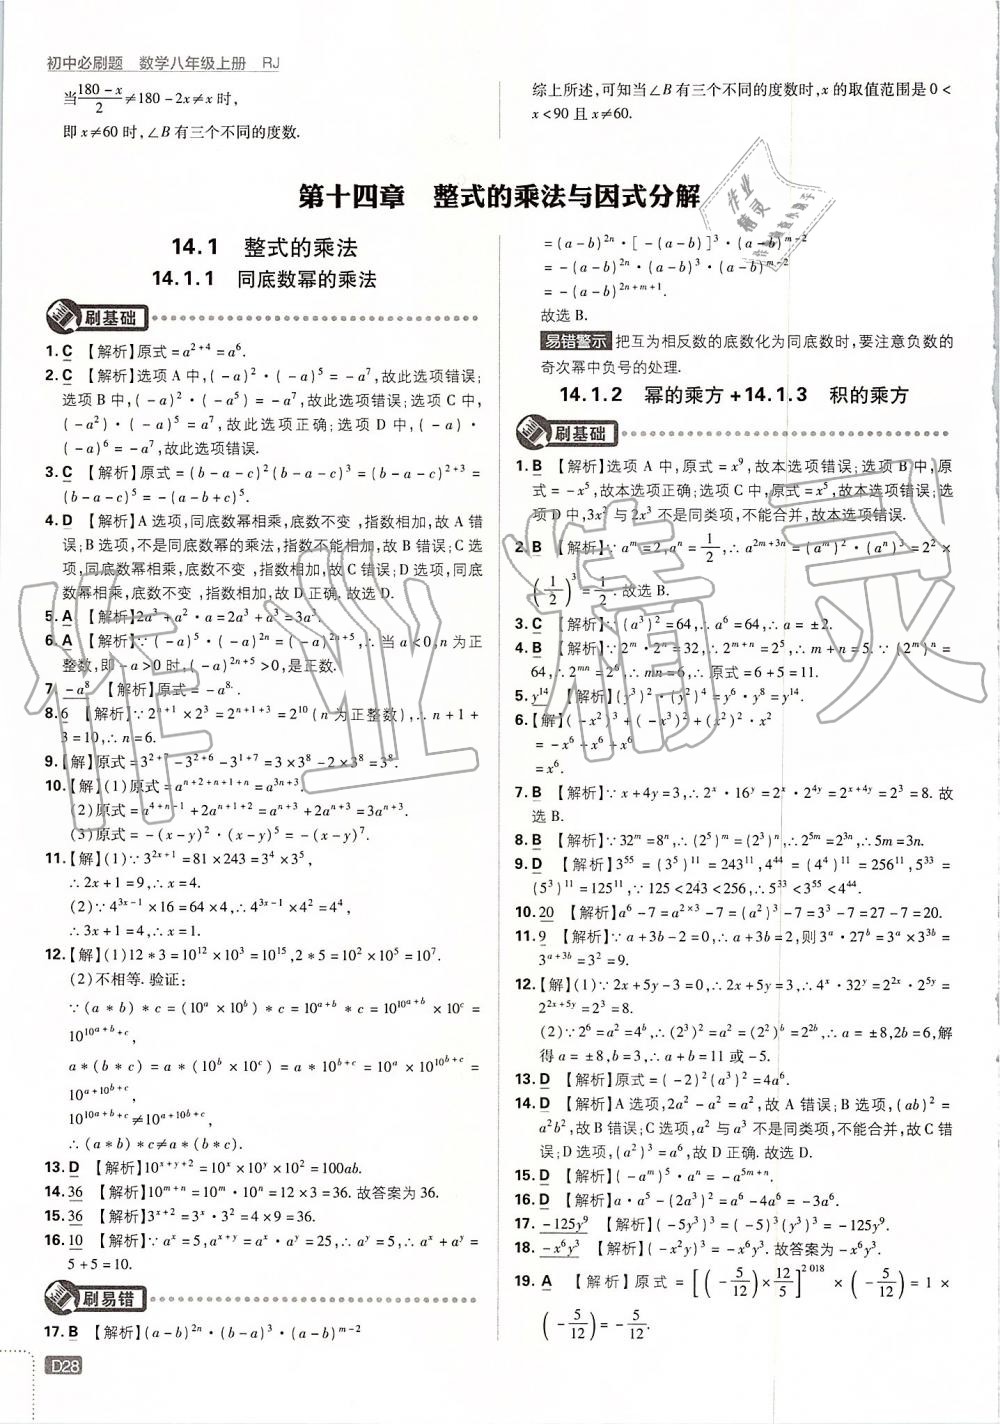 初中必刷题 数学八年级上册 RJ
当(180-x)/2≠180-2x≠x时,
即x≠60时,∠B有三个不同的度数.
综上所述,可知当∠B有三个不同的度数时,x的取值范围是0<
x<90且x≠60.
第十四章 整式的乘法与因式分解
14.1 整式的乘法
14.1.1 同底数幂的乘法
刷基础
1. C 【解析】原式=a^{2+4}=a^6.
2. C 【解析】选项A中,(-a)^2·(-a)^5=-a^7,故此选项错误;
选项B中,(-a)^2·(-a^5)=-a^7,故此选项错误;选项C中,
(-a^2)·(-a)^5=a^7,故此选项正确;选项D中,(-a)·
(-a)^6=-a^7,故此选项错误.
3. C 【解析】原式=(b-a-c)^2(b-a-c)^3=(b-a-c)^{2+3}=
(b-a-c)^5=-(a-b+c)^5.
4. D 【解析】A选项,同底数幂相乘,底数不变,指数相加,故A错
误;B选项,不是同底数幂的乘法,指数不能相加,故B错误;C选
项,同底数幂相乘,底数不变,指数相加,故C错误;D选项,同底
数幂相乘,底数不变,指数相加,故D正确.故选D.
5. A 【解析】2a^3+a^2·a=2a^3+a^3=3a^3.
6. A 【解析】∵(-a)^5·(-a)^{2n}=(-a)^{2n+5},∴当a<0,n为正
整数,即-a>0时,(-a)^{2n+5}>0,是正数.
7. -a^8 【解析】原式=-a^8.
8. 6 【解析】∵2^{n+1}×2^3=2^{n+1+3}=2^{10}(n为正整数),∴n+1+
3=10,∴n=6.
9.【解】原式=3^{2+7}-3^{2+6}-3^{1+7}=3×3^8-2×3^8=3^8.
10.【解】(1)原式=a^{n+2+n+1+n}=a^{3n+3}.
(2)原式=a^{4+n-1}+2a^{n+1+2}=a^{n+3}+2a^{n+3}=3a^{n+3}.
(3)原式=-(x-y)^2·(x-y)^5=-(x-y)^7.
11.【解】(1)∵3^{2x+1}=81×243=3^4×3^5,
∴2x+1=9,∴x=4.
(2)∵4^{3x-1}×16=64×4,∴4^{3x-1}×4^2=4^4,
∴3x+1=4,∴x=1.
12.【解】(1)12*3=10^{12}×10^3=10^{15},2*5=10^2×10^5=10^7.
(2)不相等.验证:
∵(a*b)*c=(10^a×10^b)*c=10^{a+b}*c=10^{10^{a+b}}×10^c=
10^{10^{a+b}+c},
a*(b*c)=a*(10^b×10^c)=a*10^{b+c}=10^a×10^{10^{b+c}}=
10^{a+10^{b+c}},
10^{10^{a+b}+c}≠10^{a+10^{b+c}},
∴(a*b)*c≠a*(b*c).
13. D 【解析】10^{x+y+2}=10^x×10^y×10^2=100ab.
14. 36 【解析】10^{m+n}=10^m·10^n=12×3=36.故答案为36.
15. 36 【解析】3^{x+2}=3^x·3^2=4×9=36.
16. 10 【解析】∵a^x=5,a^{x+y}=a^x·a^y=25,∴a^y=5,∴a^x+a^y=
5+5=10.
刷易错
17. B 【解析】(a-b)^{2n}·(b-a)^3·(a-b)^{m-2}
D28
=(a-b)^{2n}·[-(a-b)]^3·(a-b)^{m-2}
=-(a-b)^{2n}·(a-b)^3·(a-b)^{m-2}
=-(a-b)^{2n+m+1}.
故选B.
易错警示 把互为相反数的底数化为同底数时,要注意负数的
奇次幂中负号的处理.
14.1.2 幂的乘方+14.1.3 积的乘方
刷基础
1. B 【解析】选项A中,原式=x^9,故本选项错误;选项B中,原
式=-x^5,故本选项正确;选项C中,原式=x^5,故本选项错误;选
项D中,3x^2与2x^3不是同类项,不能合并,故本选项错误.
2. B 【解析】∵a^m=2,a^n=1/2,∴a^{2m+3n}=(a^m)^2·(a^n)^3=2^2×
(1/2)^3=1/2.故选B.
3. C 【解析】∵(a^3)^2=64,∴a^6=64,∴a=±2.
4. B 【解析】∵2^m·2^n=32,∴2^{m+n}=2^5,∴m+n=5.∵(2^m)^n=
64,∴2^{mn}=2^6,∴mn=6,∴原式=6+5=11.
5. y^{14} 【解析】(y^3)^2·(y^2)^4=y^6·y^8=y^{14}.
6.【解】(-x^2)^3+(-x^3)^2+(x^2)^2·x^2
=-x^6+x^6+x^6
=x^6.
7. B 【解析】∵x+4y=3,∴2^x·16^y=2^x·2^{4y}=2^{x+4y}=2^3=8.故
选B.
8. B 【解析】∵32^m=8^n,∴(2^5)^m=(2^3)^n,∴2^{5m}=2^{3n},∴5m=3n.
9. D 【解析】3^{55}=(3^5)^{11}=243^{11},4^{44}=(4^4)^{11}=256^{11},5^{33}=
(5^3)^{11}=125^{11},∵125<243<256,∴5^{33}<3^{55}<4^{44}.
10. 20 【解析】a^6-7=a^{2×3}-7=(a^2)^3-7=3^3-7=27-7=20.
11. 9 【解析】∵a+3b-2=0,∴a+3b=2,则3^a·27^b=3^a×3^{3b}=
3^{a+3b}=3^2=9.
12.【解】(1)∵2x+5y-3=0,∴2x+5y=3,∴4^x·32^y=2^{2x}·2^{5y}=
2^{2x+5y}=2^3=8.
(2)∵2^6=a^2=4^b,∴(2^3)^2=a^2=(2^2)^b=2^{2b},∴a=±8,2b=6,解
得a=±8,b=3,∴a+b=11或-5.
13. D 【解析】原式=(-2)^2(a^3)^2=4a^6.
14. D 【解析】A选项,2a^2-a^2=a^2,故A错误;B选项,(ab)^2=
a^2b^2,故B错误;C选项,a^2与a^3不是同类项,不能合并,故C错
误;D选项,(a^2)^3=a^6,故D正确.故选D.
15. D 【解析】(-a^m)^5·a^n=-a^{5m+n}.
16. D 【解析】a·a^5-(2a^3)^2=a^6-4a^6=-3a^6.
17. -125y^9 【解析】(-5y^3)^3=(-5)^3(y^3)^3=-125y^9.
18. -x^6y^3 【解析】(-x^2y)^3=-x^6y^3.故答案为-x^6y^3.
19. A 【解析】原式=[(-5/12)×12/5]^{2 018}×(-5/12)=1×
(-5/12)=-5/12.
作业精灵